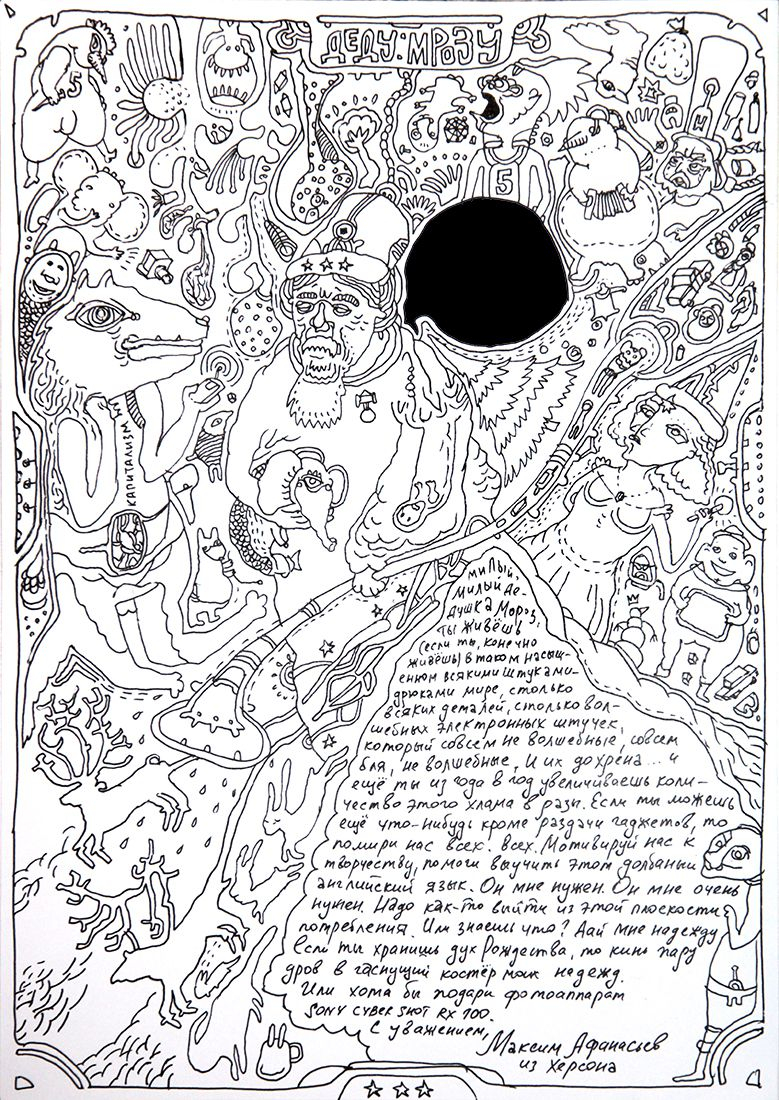 ДЕДУ:МРОЗУ
5
5
М
КАПИТАЛИЗМ
МИЛЫЙ,
МИЛЫЙ ДЕ-
ДУШКА МОРОЗ,
ТЫ ЖИВЁШЬ
(если ты, конечно
живёшь) в таком насыщ-
енном всякими штуками-
дрюками мире, столько
всяких деталей, столько вол-
шебных электронных штучек,
который совсем не волшебные, совсем
бля, не волшебные, и их до хрена... и
ещё ты из года в год увеличиваешь коли-
чество этого хлама в разы. Если ты можешь
ещё что-нибудь кроме раздачи гаджетов, то
помири нас всех. всех. Мотивируй нас к
творчеству, помоги выучить этот долбаный
английский язык. Он мне нужен. Он мне очень
нужен. Надо как-то выйти из этой плоскости
потребления. Или знаешь что? Дай мне надежду
если ты хранишь дух Рождества, то кинь пару
дров в гаснущий костёр моих надежд.
Или хотя бы подари фотоаппарат
SONY CYBER SHOT RX 100.
С уважением,
Максим Афанасьев
из Херсона